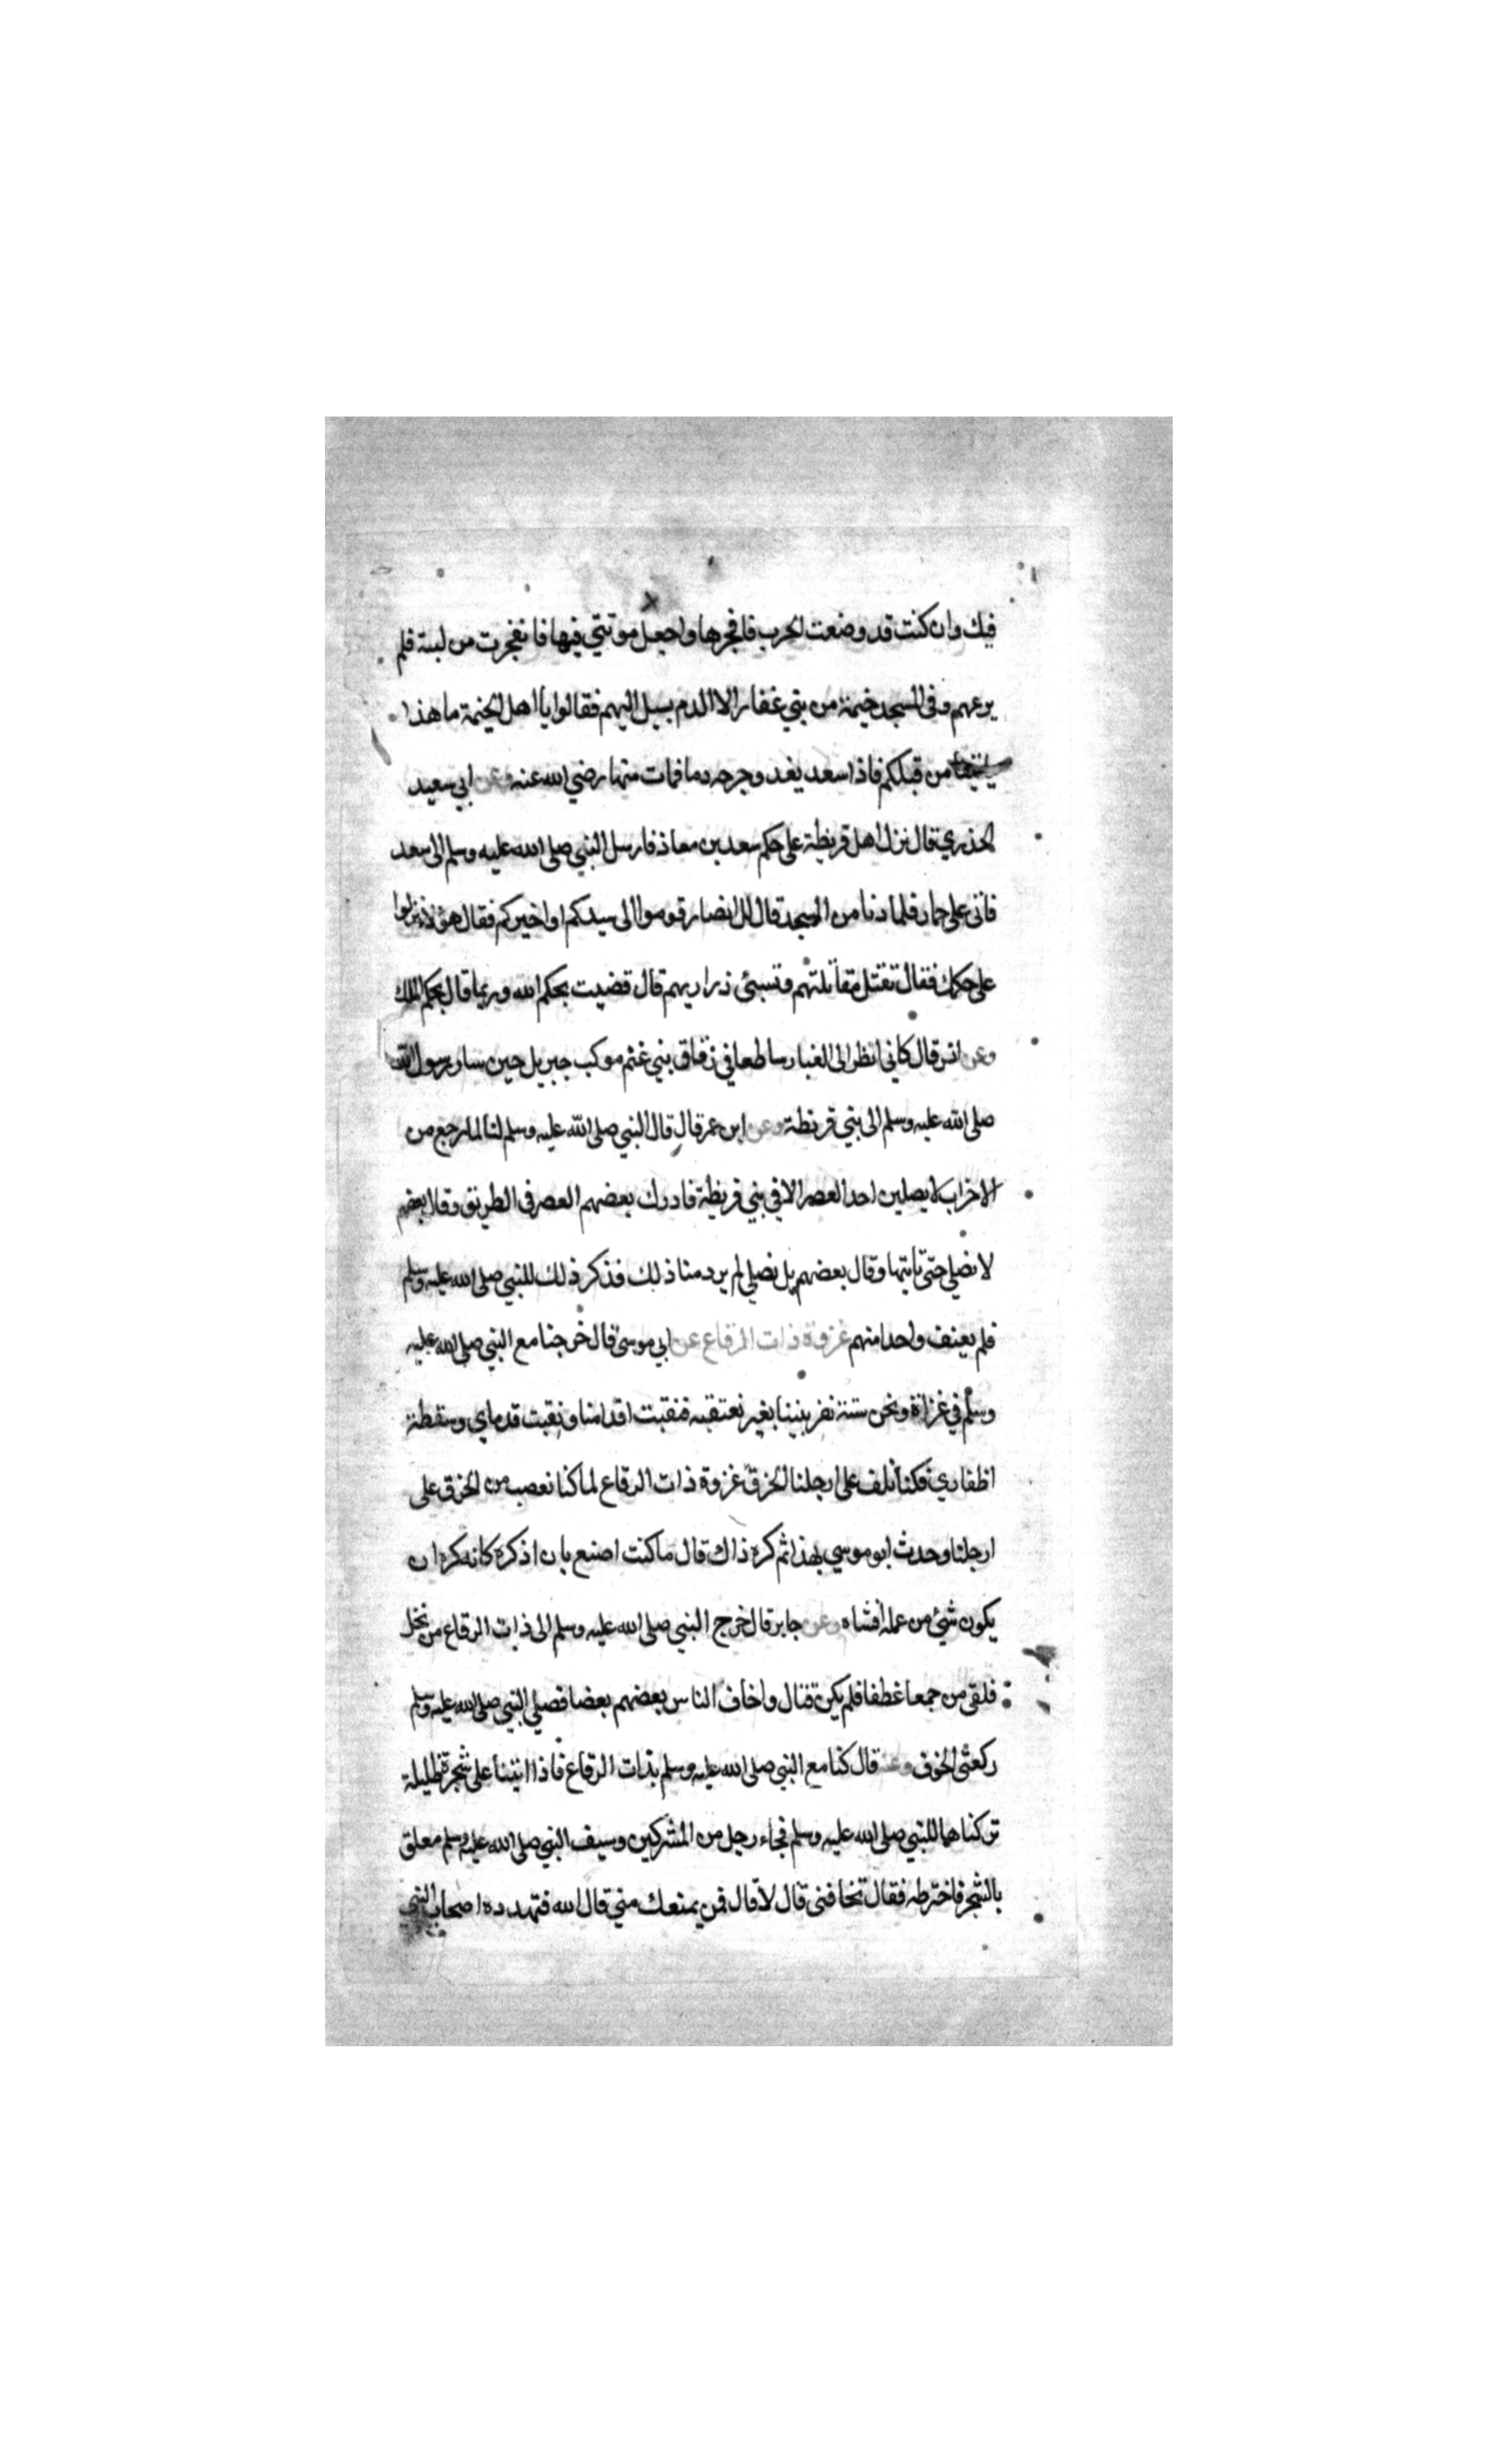 فيك وان كنت قد وضعت الحرب فافجرها واجعل موتتي فيها فانفجرت من لبته فلم
يرعهم وفي المسجد خيمة من بني غفار الا الدم يسيل اليهم فقالوا يا اهل الخيمة ما هذا
من قبلكم فاذا سعد يغد وجرحه دما فمات منها رضي الله عنه وعن ابي سعيد
الخذري قال نزل اهل قريظة على حكم سعد بن معاذ فارسل النبي صلى الله عليه وسلم الى سعد
فاتى على حمار فلما دنا من المسجد قال للانصار قوموا الى سيدكم او اخيركم فقال هؤلاء نزلوا
على حكمك فقال تقتل مقاتلتهم وتسبئ ذراريهم قال قضيت بحكم الله وربما قال بحكم الملك
وعن انس قال كاني انظر الى الغبار ساطعا في زقاق بني غنم موكب جبريل حين سار رسول الله
صلى الله عليه وسلم الى بني قريظة وعن ابن عمر قال قال النبي صلى الله عليه وسلم لنا لما رجع من
الاحزاب لا يصلين احد العصر الا في بني قريظة فادرك بعضهم العصر في الطريق وقال بعضهم
لا نصلي حتى ناتيها وقال بعضهم بل نصلي لم يرد منا ذلك فذكر ذلك للنبي صلى الله عليه وسلم
فلم يعنف واحدا منهم غزوة ذات الرقاع عن ابي موسى قال خرجنا مع النبي صلى الله عليه
وسلم في غزاة ونحن ستة نفر بيننا بغير نعتقبه فنقبت اقدامنا ونقبت قدماي وسقطة
اظفاري فكنا نلف على ارجلنا الخرق غزوة ذات الرقاع لما كنا نعصب من الخرق على
ارجلنا وحدث ابو موسي بهذا ثم كره ذاك قال ما كنت اصنع بان اذكره كانه كره ان
يكون شئ من عمله افشاه وعن جابر قال خرج النبي صلى الله عليه وسلم الى ذات الرقاع من نخل
فلقى من جمعا غطفا فلم يكن قتال واخاف الناس بعضهم بعضا فصلي النبي صلى الله عليه وسلم
ركعتى الخوف وعنه قال كنا مع النبي صلى الله عليه وسلم بذات الرقاع فاذا اتينا على شجرة ظليلة
تركناها للنبي صلى الله عليه وسلم فجاء رجل من المشركين وسيف النبي صلى الله عليه وسلم معلق
بالشجر فاخترطه فقال تخافنى قال لا قال فمن يمنعك مني قال الله فتهدده اصحاب النبي